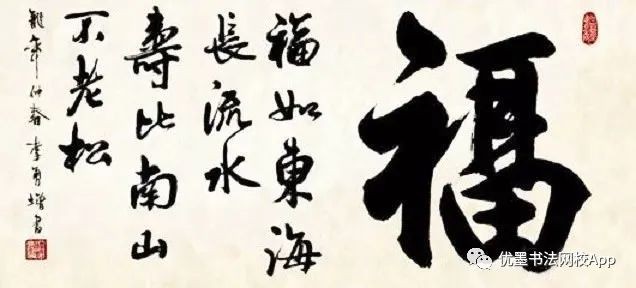 福
福如東海
長流水
壽比南山
不老松
龍年仲春 李 增書
优墨书法网校App